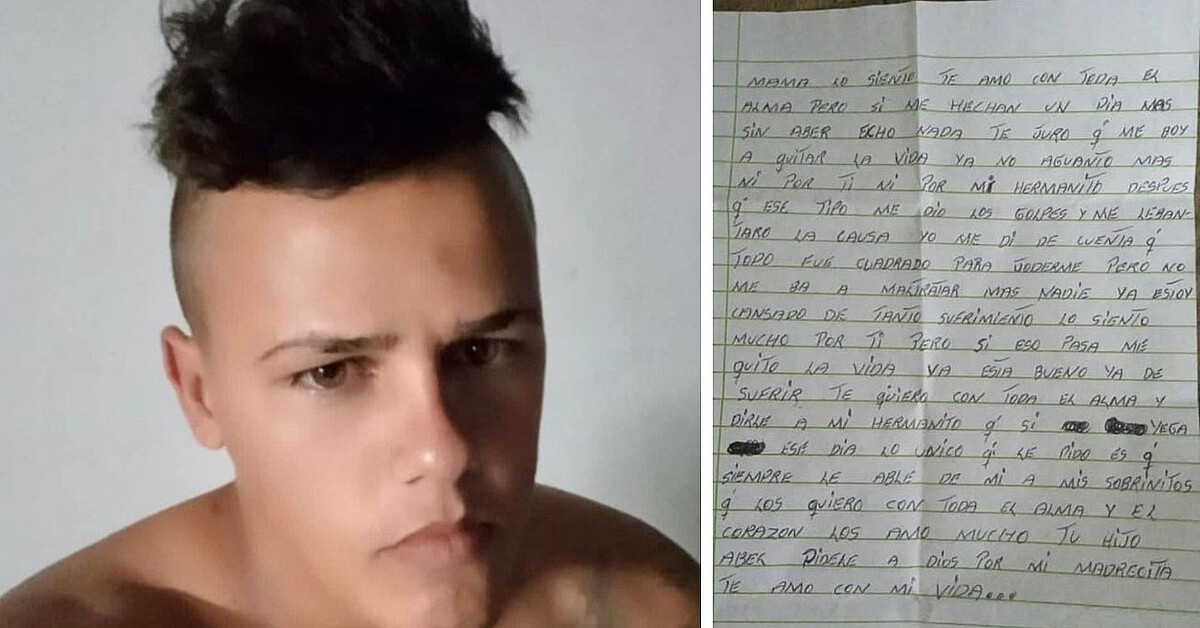 MAMA LO SIENTO TE AMO CON TODA EL
ALMA PERO SI ME HECHAN UN DIA MAS
SIN ABER ECHO NADA TE JURO Q' ME BOY
A QUITAR LA VIDA YA NO AGUANTO MAS
NI POR TI NI POR MI HERMANITO DESPUES
Q' ESE TIPO ME DIO LOS GOLPES Y ME LEBAN-
TARO LA CAUSA YO ME DI DE CUENTA Q'
TODO FUE CUADRADO PARA JODERME PERO NO
ME BA A MALTRATAR MAS NADIE YA ESTOY
CANSADO DE TANTO SUFRIMIENTO LO SIENTO
MUCHO POR TI PERO SI ESO PASA ME
QUITO LA VIDA YA ESTA BUENO YA DE
SUFRIR TE QUIERO CON TODA EL ALMA Y
DIRLE A MI HERMANITO Q' SI YEGA
ESE DIA LO UNICO Q' LE PIDO ES Q'
SIEMPRE LE ABLE DE MI A MIS SOBRINITOS
Q' LOS QUIERO CON TODA EL ALMA Y EL
CORAZON LOS AMO MUCHO TU HIJO
ABEL PIDELE A DIOS POR MI MADRECITA
TE AMO CON MI VIDA...